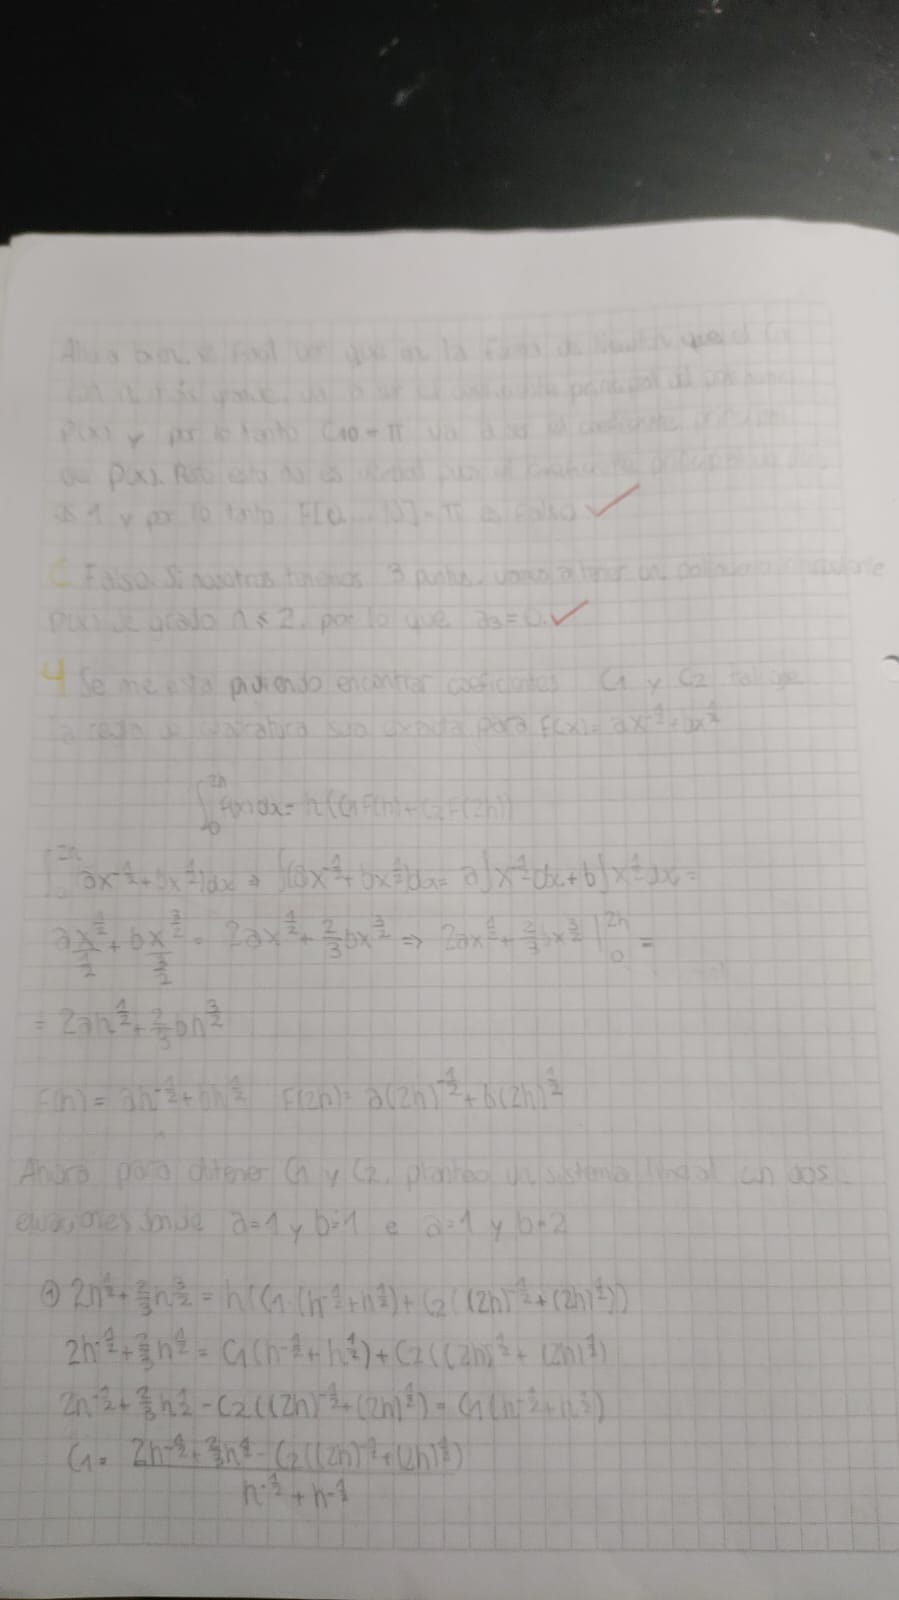 Ahora bien, es facil ver que en la forma de Newton que el
P(x) y por lo tanto C10 = π va a ser el coeficiente principal
de P(x). Pero esto no es verdad pues el coeficiente principal
es 1 y por lo tanto F[0,...,10] = π es Falso ✓
C Falso. Si nosotros tenemos 3 puntos, vamos a tener un polinomio interpolante
P(x) de grado n ≤ 2, por lo que a₃=0. ✓
4 Se me esta pidiendo encontrar coeficientes C₁ y C₂ tal que
la regla de cuadratura sea exacta para F(x)= ax^{-1/2}+bx^{1/2}
∫₀^{2h} F(x)dx = h(C₁F(h)+C₂F(2h))
∫₀^{2h} ax^{-1/2}+bx^{1/2})dx ⇒ ∫(ax^{-1/2}+bx^{1/2})dx= a∫x^{-1/2}dx+b∫x^{1/2}dx =
ax^{1/2}/(1/2) + bx^{3/2}/(3/2) = 2ax^{1/2}+2/3bx^{3/2} ⇒ 2ax^{1/2}+2/3bx^{3/2} |₀^{2h} =
= 2ah^{1/2}+2/3bh^{3/2}
F(h) = ah^{-1/2}+bh^{1/2} F(2h)= a(2h)^{-1/2}+b(2h)^{1/2}
Ahora para obtener C₁ y C₂, planteo un sistema lineal con dos
ecuaciones donde a=1 y b=1 e a=1 y b=2
① 2h^{1/2}+2/3h^{3/2} = h(C₁.(h^{-1/2}+h^{1/2})+C₂((2h)^{-1/2}+(2h)^{1/2}))
2h^{-1/2}+2/3h^{1/2} = C₁(h^{-1/2}+h^{1/2})+C₂((2h)^{-1/2}+(2h)^{1/2})
2h^{-1/2}+2/3h^{1/2}-C₂((2h)^{-1/2}+(2h)^{1/2}) = C₁(h^{-1/2}+h^{1/2})
C₁= 2h^{-1/2}+2/3h^{1/2}-C₂((2h)^{-1/2}+(2h)^{1/2})
h^{-1/2}+h^{-1/2}